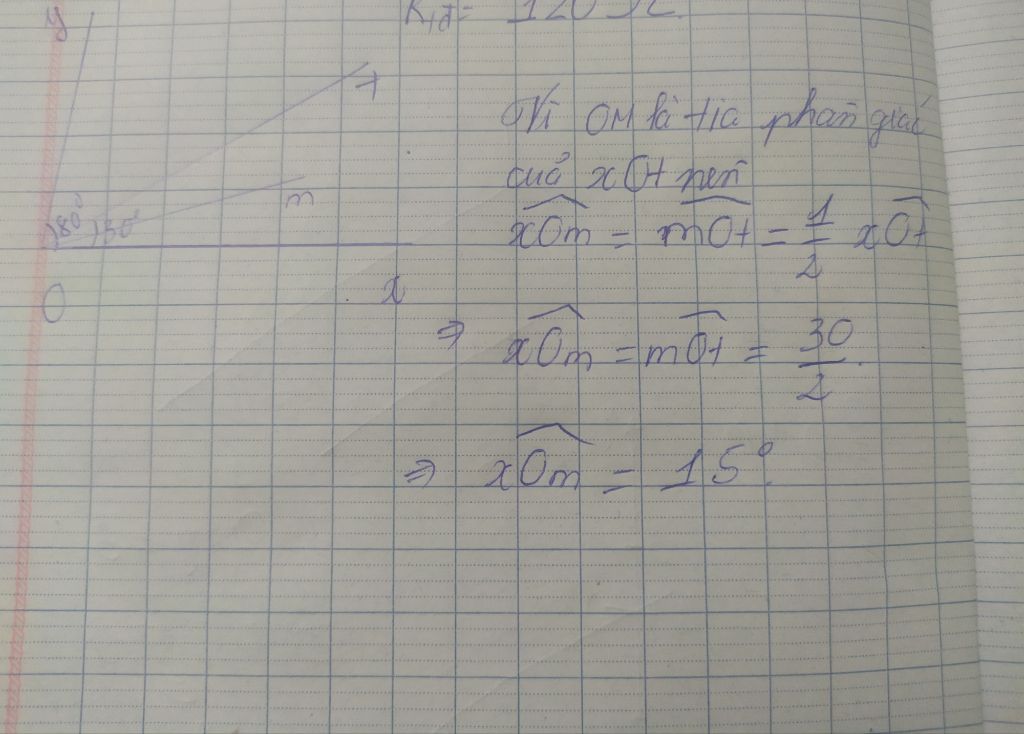 R₁đ = 120 Ω.
y
t
m
80°
30°
O
x
Vì OM là tia phân giác
của xOt nên
xOm = mOt = 1/2 xOt
⇒ xOm = mOt = 30/2.
⇒ xOm = 15°.